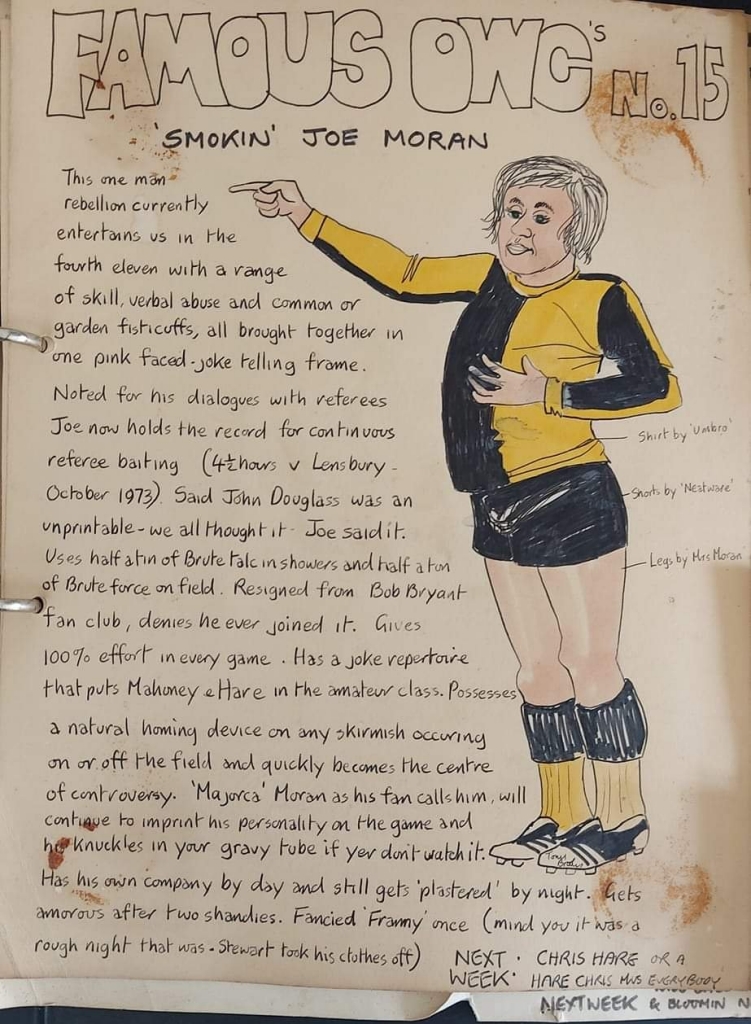 FAMOUS OWC'S No.15
'SMOKIN' JOE MORAN
This one man
rebellion currently
entertains us in the
fourth eleven with a range
of skill, verbal abuse and common or
garden fisticuffs, all brought together in
one pink faced-joke telling frame.
Noted for his dialogues with referees
Joe now holds the record for continuous
referee baiting (4½ hours v Lensbury -
October 1973). Said John Douglass was an
unprintable - we all thought it - Joe said it.
Uses half a tin of Brute talc in showers and half a ton
of Brute force on field. Resigned from Bob Bryant
fan club, denies he ever joined it. Gives
100% effort in every game. Has a joke repertoire
that puts Mahoney & Hare in the amateur class. Possesses
a natural homing device on any skirmish occuring
on or off the field and quickly becomes the centre
of controversy. 'Majorca' Moran as his fan calls him, will
continue to imprint his personality on the game and
his knuckles in your gravy tube if yer don't watch it.
Has his own company by day and still gets 'plastered' by night. Gets
amorous after two shandies. Fancied 'Franny' once (mind you it was a
rough night that was - Stewart took his clothes off)
Shirt by 'Umbro'
Shorts by 'Neatware'
Legs by 'Mrs Moran'
Tony
NEXT WEEK · CHRIS HARE OR A
HARE CHRIS EVERYBODY
NEXT WEEK & BLOOMIN